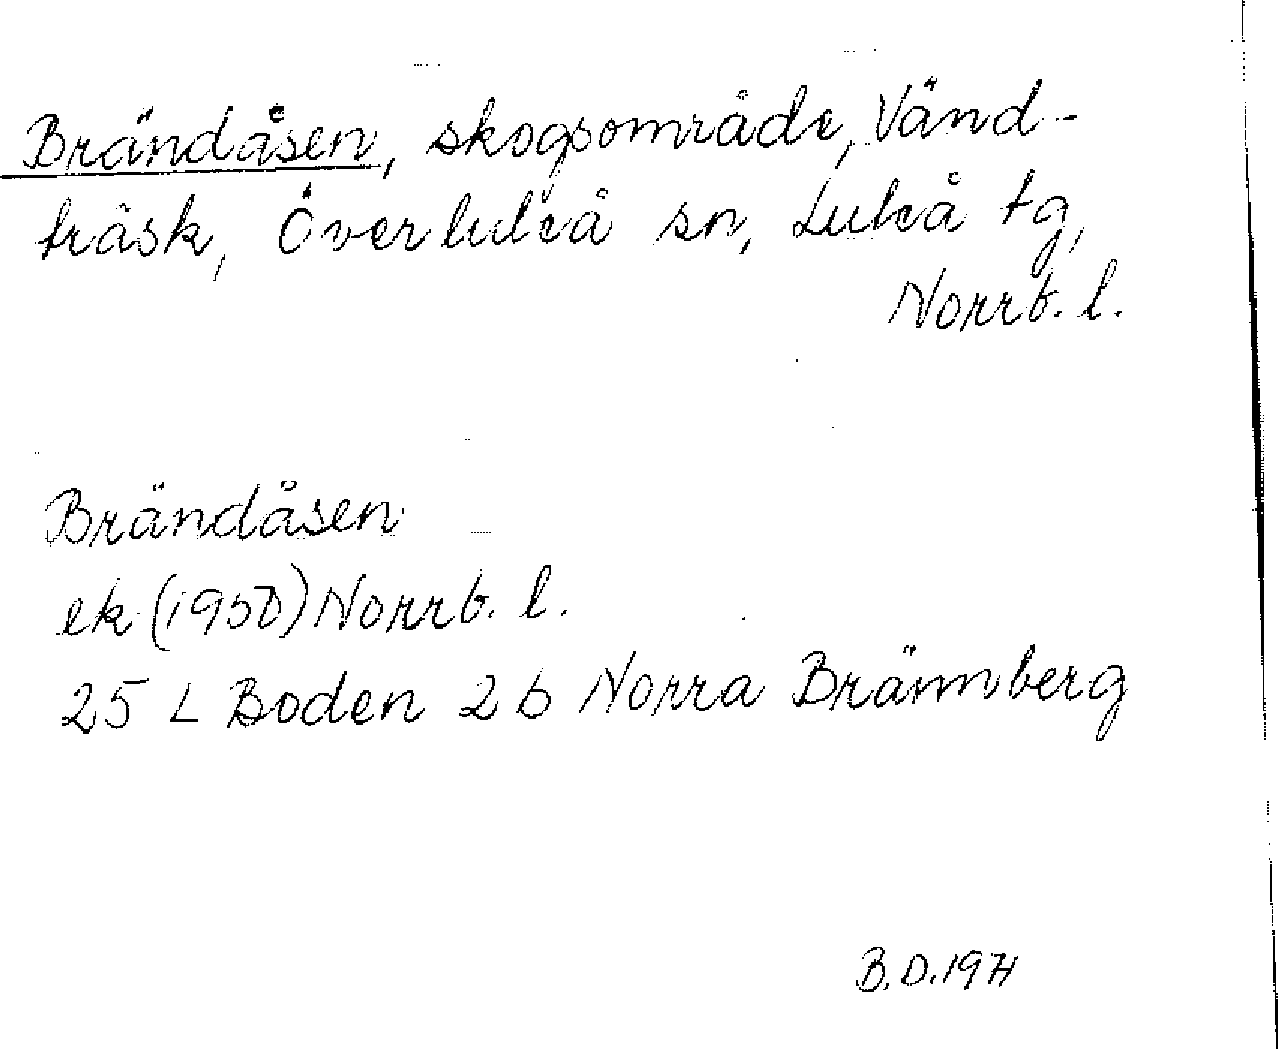 Brändåsen, skogsområde, Vänd-
träsk, Överluleå sn, Luleå tg,
Norrb. l.
Brändåsen
ek (1950) Norrb. l.
25 L Boden 2b Norra Brännberg
B.D. 1971